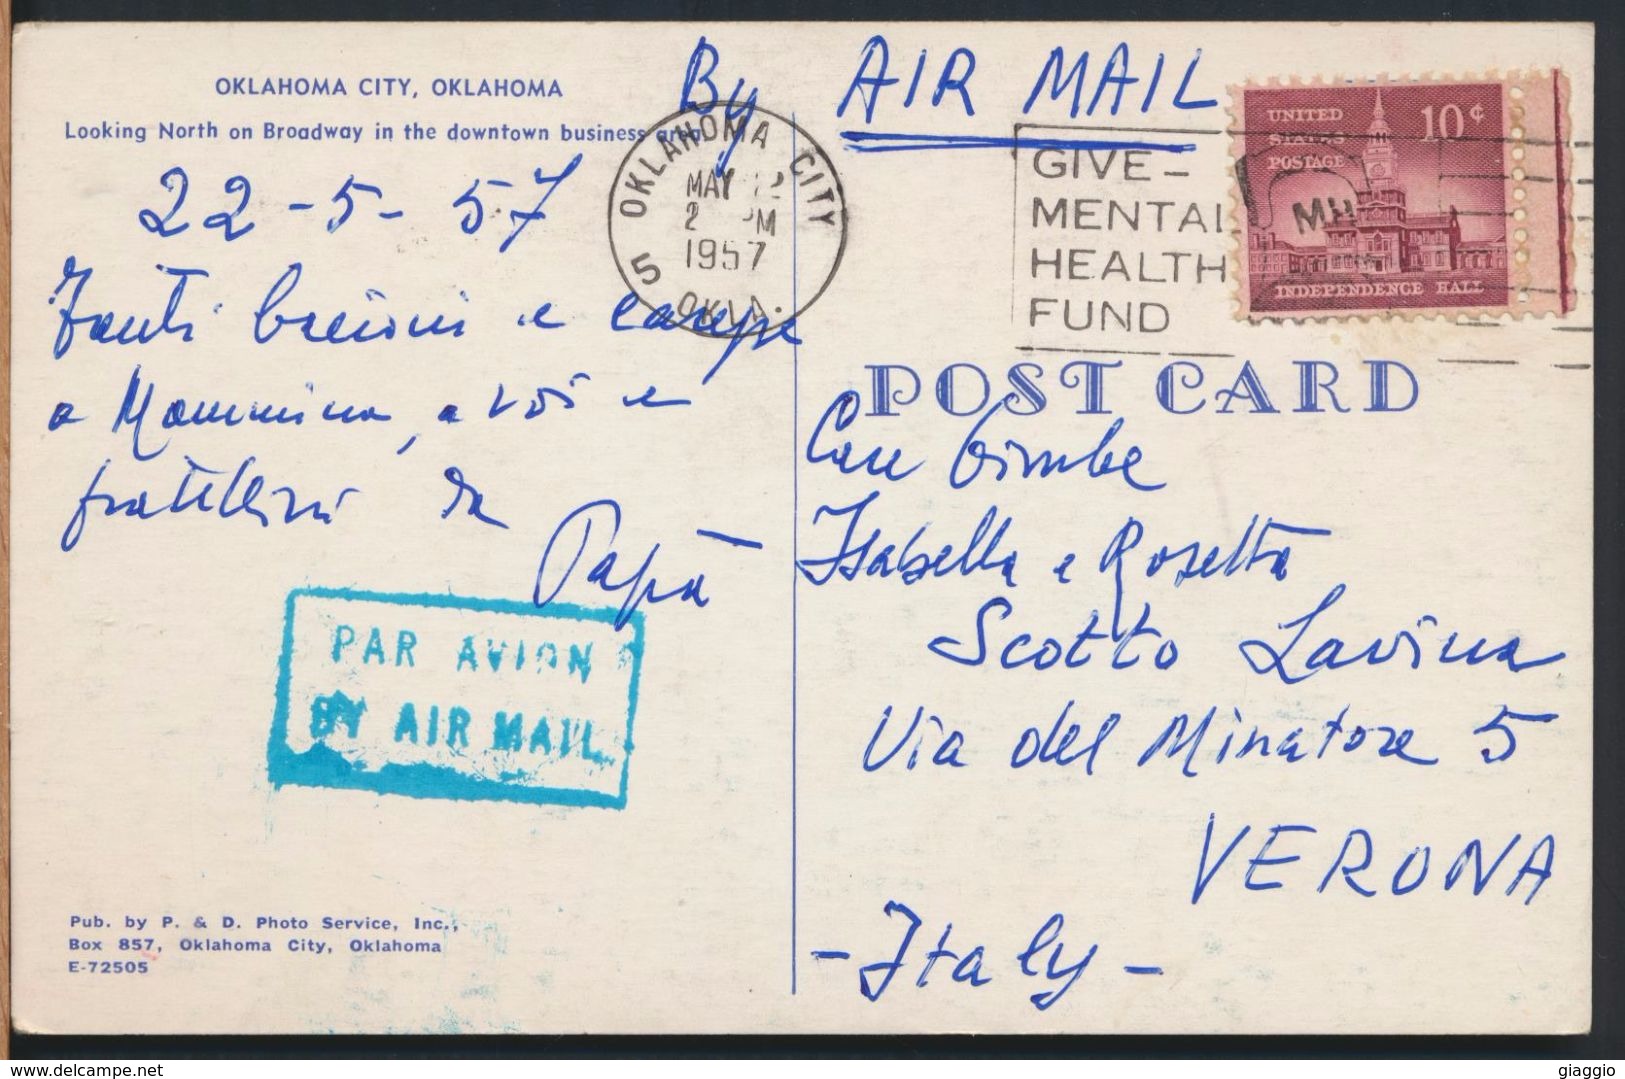 OKLAHOMA CITY, OKLAHOMA
Looking North on Broadway in the downtown business area
By AIR MAIL
22-5-57
OKLAHOMA CITY
MAY 12
2 PM
1957
5 OKLA.
GIVE-
MENTAL
HEALTH
FUND
MH
UNITED
STATES
POSTAGE
10¢
INDEPENDENCE HALL
POST CARD
Tanti bacioni e
a Mammina, a voi e
fratellini da
Papà
PAR AVION
BY AIR MAIL
Care bimbe
Isabella e Rosetta
Scotto Lavina
Via del Minatore 5
VERONA
- Italy -
Pub. by P. & D. Photo Service, Inc.,
Box 857, Oklahoma City, Oklahoma
E-72505
www.delcampe.net
giaggio